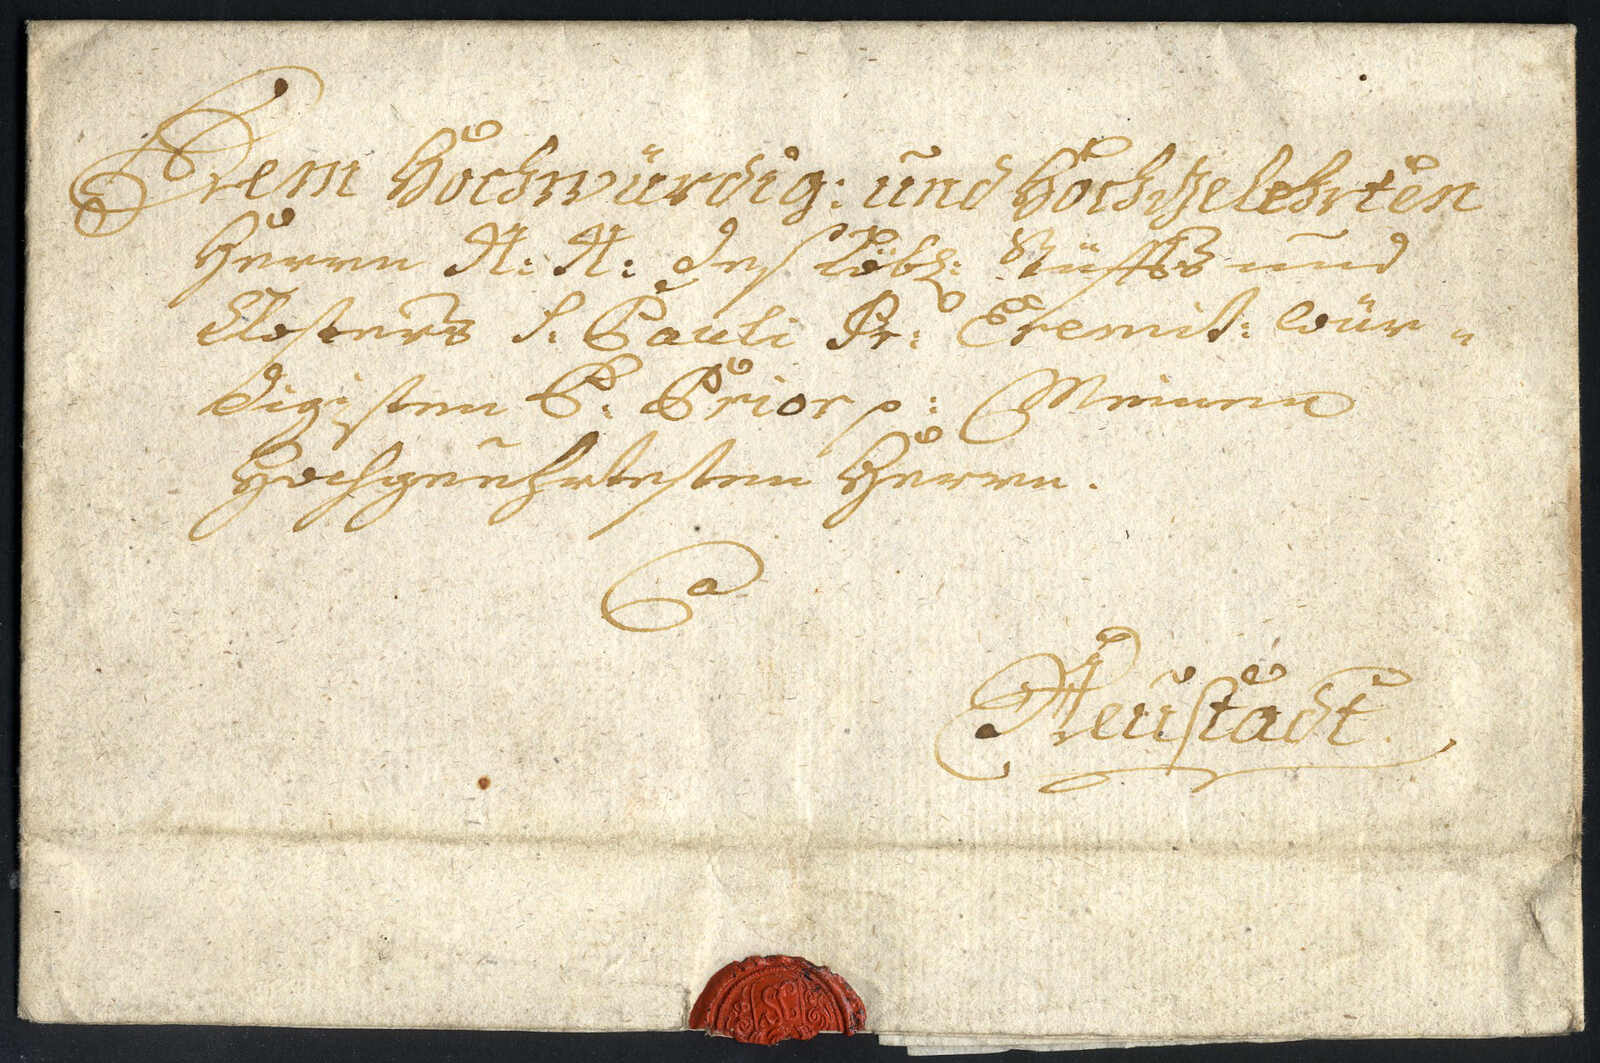 Dem Hochwürdig: und Hochgelehrten
Herrn N: N: deß Löbl: Stüffts und
Closters S. Pauli Pr: Eremit: wür=
digisten P: Prior p: Meinen
Hochgeehrtesten Herrn.
a
Neustadt.